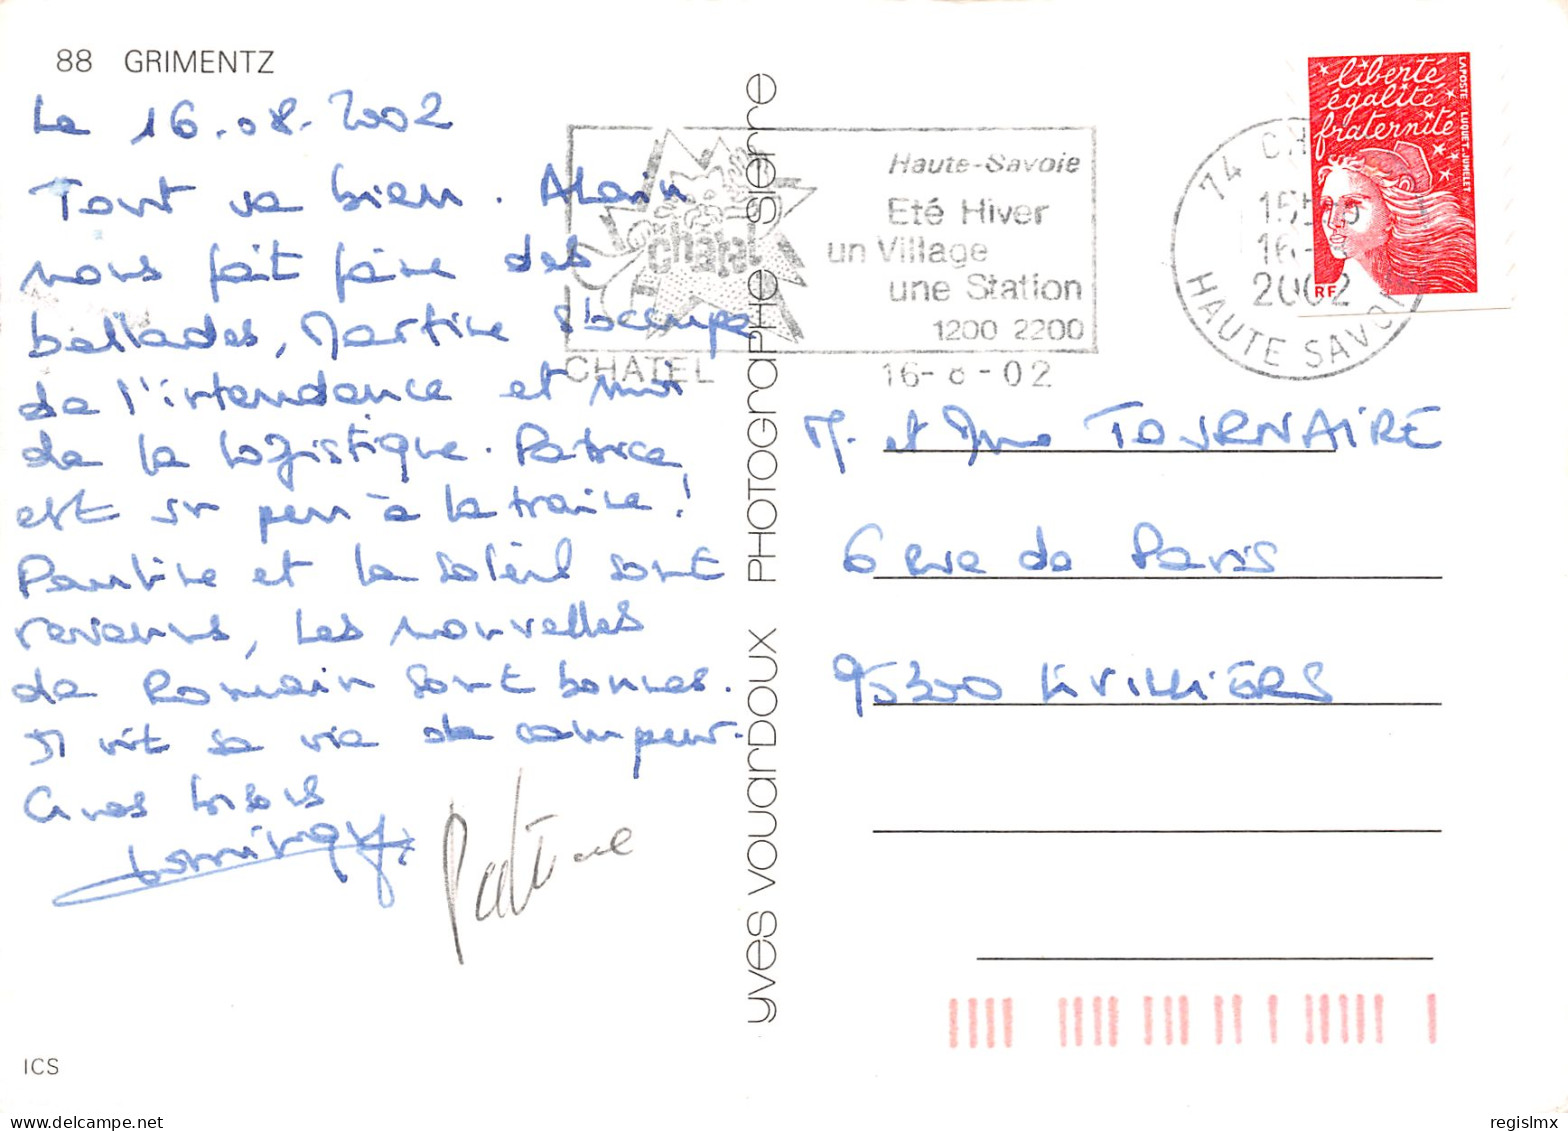 88 GRIMENTZ
Le 16.08.2002
Tout va bien. Alain
nous fait faire des
ballades, Martine s'occupe
de l'intendance et moi
de la logistique. Patrice
est un peu à la traine!
Pauline et le soleil sont
revenus, les nouvelles
de Romain sont bonnes.
Il vit sa vie de campeur.
Gros bisous
Dominique
Patrice
ICS
YVES VOUARDOUX PHOTOGRAPHE SIERRE
chatel
Haute-Savoie
Eté Hiver
un Village
une Station
1200 2200
CHATEL
16-8-02
74 CH
16-
2002
HAUTE SAVOIE
liberté
égalité
fraternité
LAPOSTE LUQUET-JUMELET
RF
M. et Mme TOURNAIRE
6 rue de Paris
95300 LIVILLIERS
regislmx